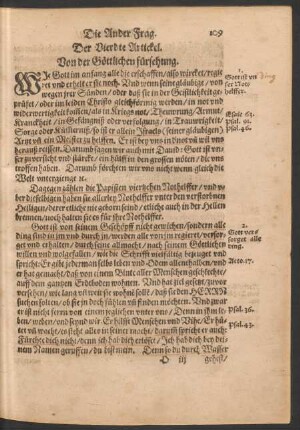 Die Ander Frag. 109
Der Vierdte Artickel.
Von der Göttlichen fürsehung.
Wie Gott im anfang alle die erschaffen/also wircket/regie
ret vnd erhelt er sie noch. Vnd wenn seine gläubige/von
wegen jrer Sünden/oder daß sie in der Gesellschafft ge-
prüfet/oder jm beiden Christo gleichförmig werden/in not vnd
widerwertigkeit
Kranckheit/in Gefängniß oder verfolgung/in Traurigkeit/
Sorge oder Kümmerniß/so ist er allein Israels (seiner gläubigen)
Artzt vnd ein Meister zu helffen. Er ist bey vns in der not/ er wil vns
herauß reissen. Darumb sagen wir auch mit David: Gott ist vnser
zuversicht vnd stärcke/ein hülffen den grossen nöten/die vns
troffen haben. Darumb förchten wir vns nicht wenn gleich die
Welt vntergienge ꝛc.
Dagegen zählen die Papisten vierzehen Nothelffer/vnd v-
ber dieselbigen haben sie allerley Nothelffer vnter den verstorbenen
Heiligen/deren etliche nie geboren seind/etliche auch in der Hellen
brennen/noch halten sie es für jhre Nothelffer.
Gott ist von seinem Geschöpff nicht gewichen/sondern alle
ding sind in jm vnd durch jn/werden alle von jm regieret/versor-
get vnd erhalten/durch seine allmacht/nach seinem Göttlichen
willen vnd wolgefallen/wie die Schrifft vielfältig bezeuget vnd
spricht: Er gibt jederman selbs leben vnd odem allenthalben/vnd
er hat gemacht/daß von einem Blute aller Menschen geschlechte/
auff dem gantzen Erdboden wohnen. Vnd hat ziel gesetzt/zuvor
versehen/wie lang vnd weit sie wohnen sollen/daß sie den HERRN
suchen solten/ob sie jn doch fühlen vnd finden möchten. Vnd zwar
er ist nicht fern von einem jeglichen vnter vns/Denn in jhm le-
ben/weben/vnd seynd wir. Er hilfft Menschen vnd Vihe/Er hü-
tet
Fürchte dich nicht/denn ich hab dich erlöset/Ich hab dich bey dei-
nem Namen geruffen/du bist mein. Denn so du durch Wasser
O iij gehest/
1.
Gott ist vn-
ser Not-
helffer.
Psal. 91.
Psal. 46.
2.
Gott ver-
sorget alle
ding.
Act. 17.
Psal. 36.